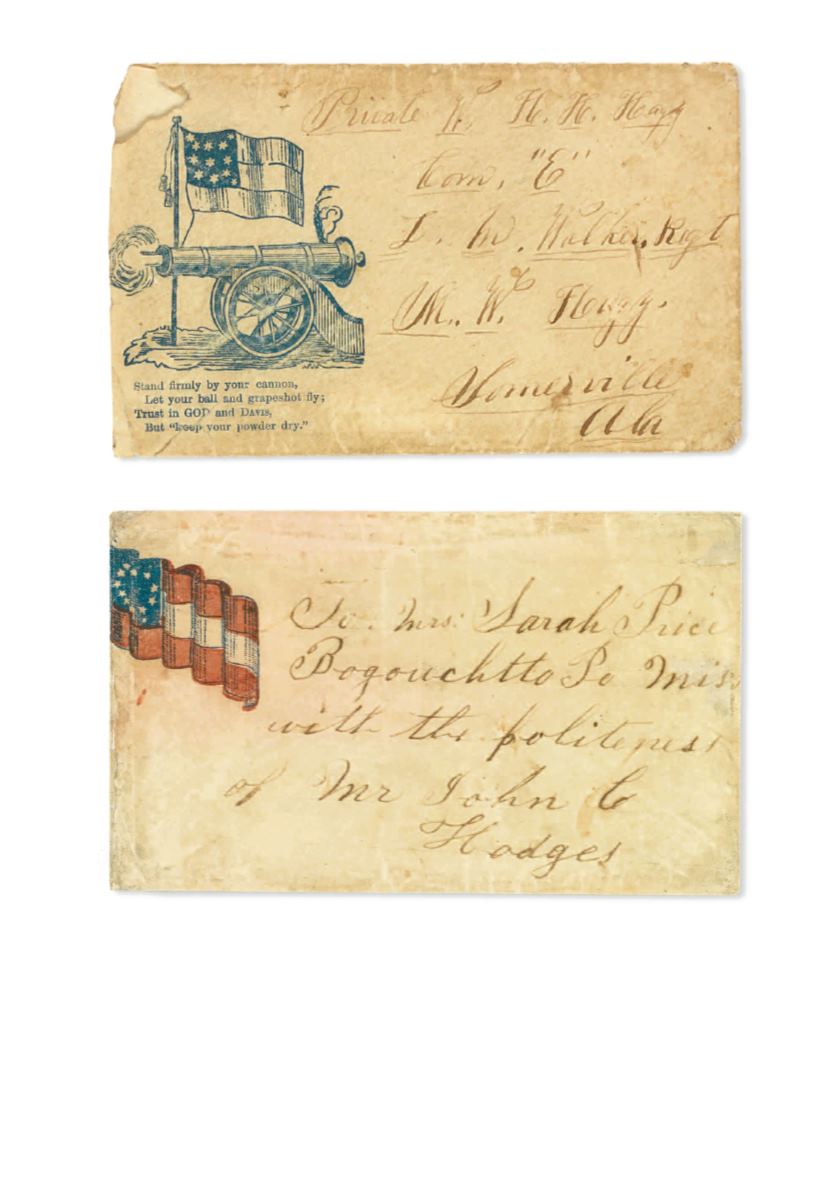 Private W. H. H. Hagg
Com. "E"
L. M. Walker, Regt
M. W. Hagg.
Somerville
Ala
Stand firmly by your cannon,
Let your ball and grapeshot fly;
Trust in GOD and DAVIS,
But "keep your powder dry."
To Mrs. Sarah Price
Bogouchtto Po Miss
with the politeness
of Mr John C
Hodges